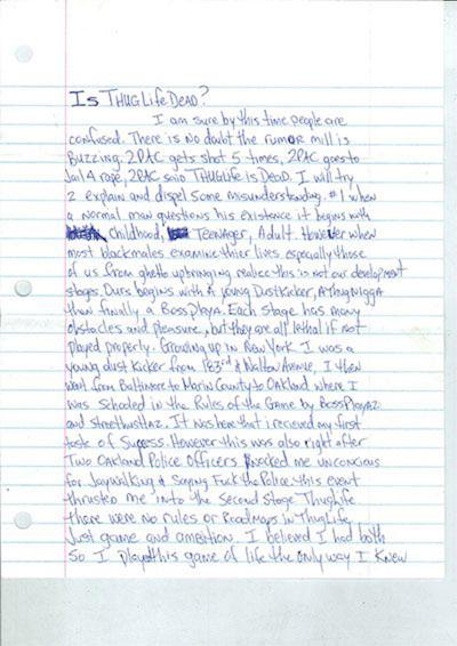 Is THUGLife DEAD?
I am sure by this time people are
confused. There is no doubt the rumor mill is
Buzzing. 2PAC gets shot 5 times, 2PAC goes to
Jail 4 rape, 2PAC said THUGLife is DeaD. I will try
2 explain and dispel some misunderstanding. #1 when
a normal man questions his existence it begins with
Childhood, Teenager, Adult. However when
most blackmales examine thier lives especially those
of us from ghetto upbringing realize this is not our development
stages. Ours begins with A young DustKicker, A Thug Nigga
then finally a Boss Playa. Each stage has many
obstacles and pleasure, but they are all lethal if not
played properly. Growing up in New York I was a
young dust kicker from 183rd & Walton Avenue, I then
went from Baltimore to Marin County to Oakland where I
was Schooled in the Rules of the Game by BossPlayaz
and streethustlaz. It was here that I recieved my first
taste of Success. However this was also right after
Two Oakland Police Officers knocked me unconcious
for Jaywalking & Saying Fuck the Police. this event
thrusted me into the Second Stage Thuglife
there were no rules or Roadmaps in ThugLife
Just game and ambition. I believed I had both
So I played this game of life the only way I knew